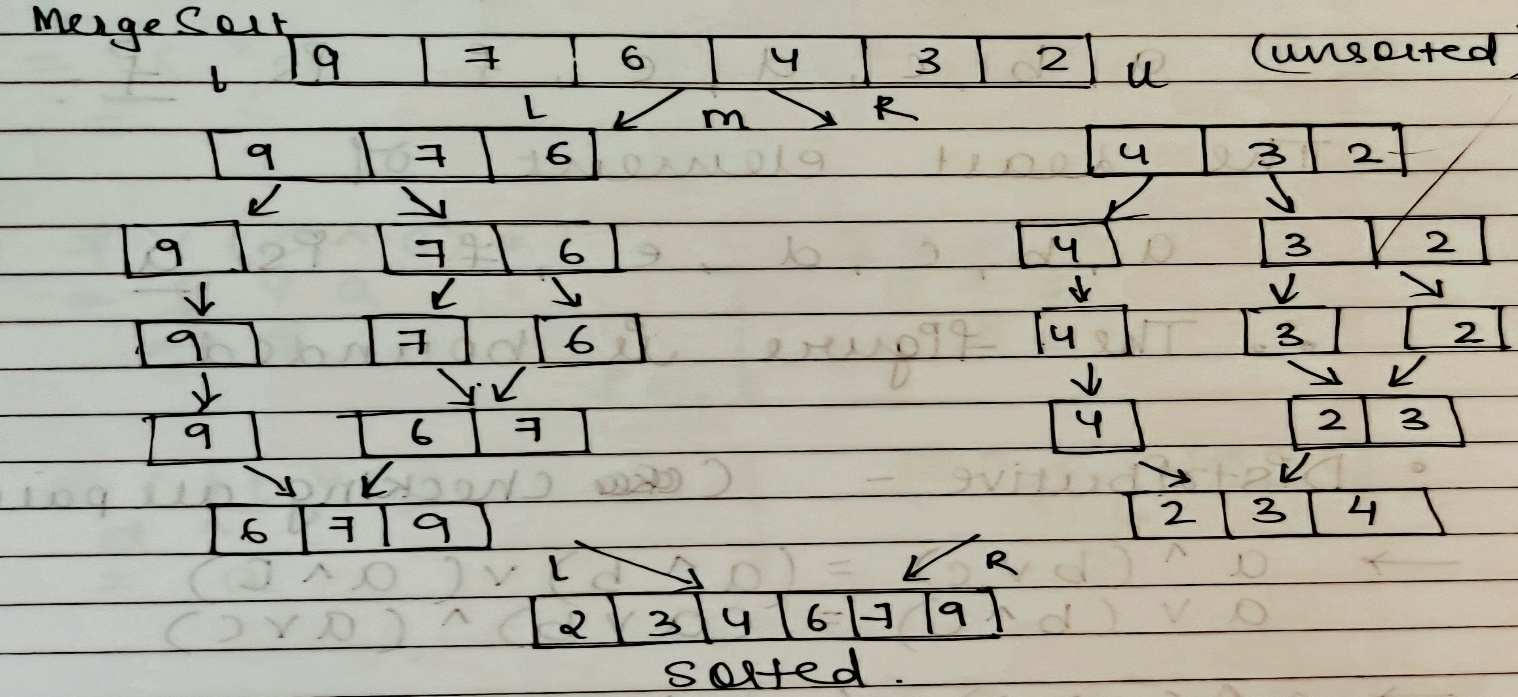 Merge Sort
l 9 7 6 4 3 2 u (unsorted)
L m R
9 7 6 4 3 2
9 7 6 4 3 2
9 7 6 4 3 2
9 6 7 4 2 3
6 7 9 2 3 4
L R
2 3 4 6 7 9
sorted.